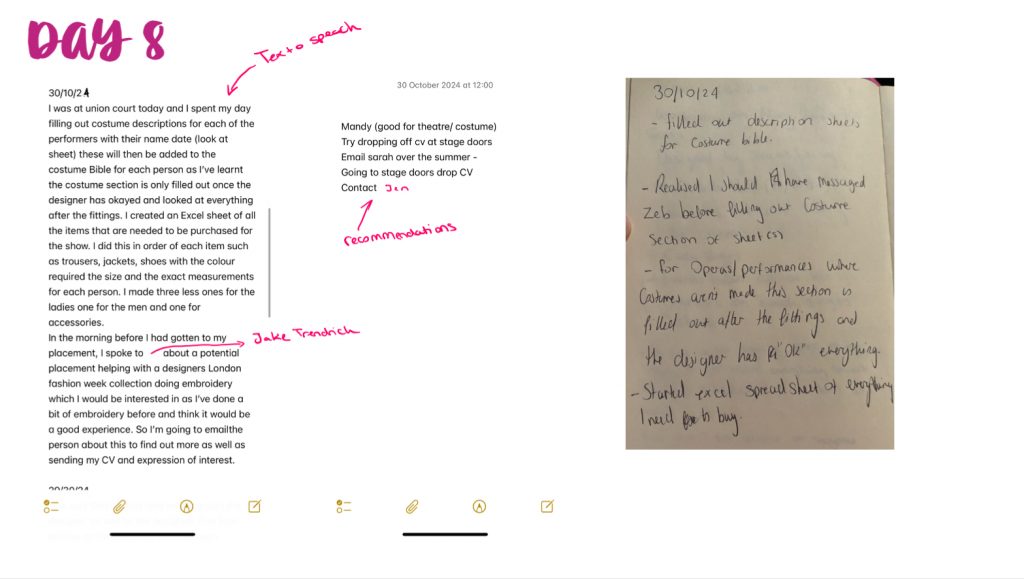 DAY 8
Text to speech
30/10/24
I was at union court today and I spent my day
filling out costume descriptions for each of the
performers with their name date (look at
sheet) these will then be added to the
costume Bible for each person as I've learnt
the costume section is only filled out once the
designer has okayed and looked at everything
after the fittings. I created an Excel sheet of all
the items that are needed to be purchased for
the show. I did this in order of each item such
as trousers, jackets, shoes with the colour
required the size and the exact measurements
for each person. I made three less ones for the
ladies one for the men and one for
accessories.
In the morning before I had gotten to my
placement, I spoke to about a potential
placement helping with a designers London
fashion week collection doing embroidery
which I would be interested in as I've done a
bit of embroidery before and think it would be
a good experience. So I'm going to emailthe
person about this to find out more as well as
sending my CV and expression of interest.
Jake Trendrich
30 October 2024 at 12:00
Mandy (good for theatre/ costume)
Try dropping off cv at stage doors
Email sarah over the summer -
Going to stage doors drop CV
Contact Jen
recommendations
30/10/24
- filled out description sheets
for Costume bible.
- Realised I should have messaged
Zeb before filling out Costume
Section of sheet(s)
- for Operas/performances where
Costumes aren't made this section is
filled out after the fittings and
the designer has "OK" everything.
- Started excel spreadsheet of everything
I need to buy.